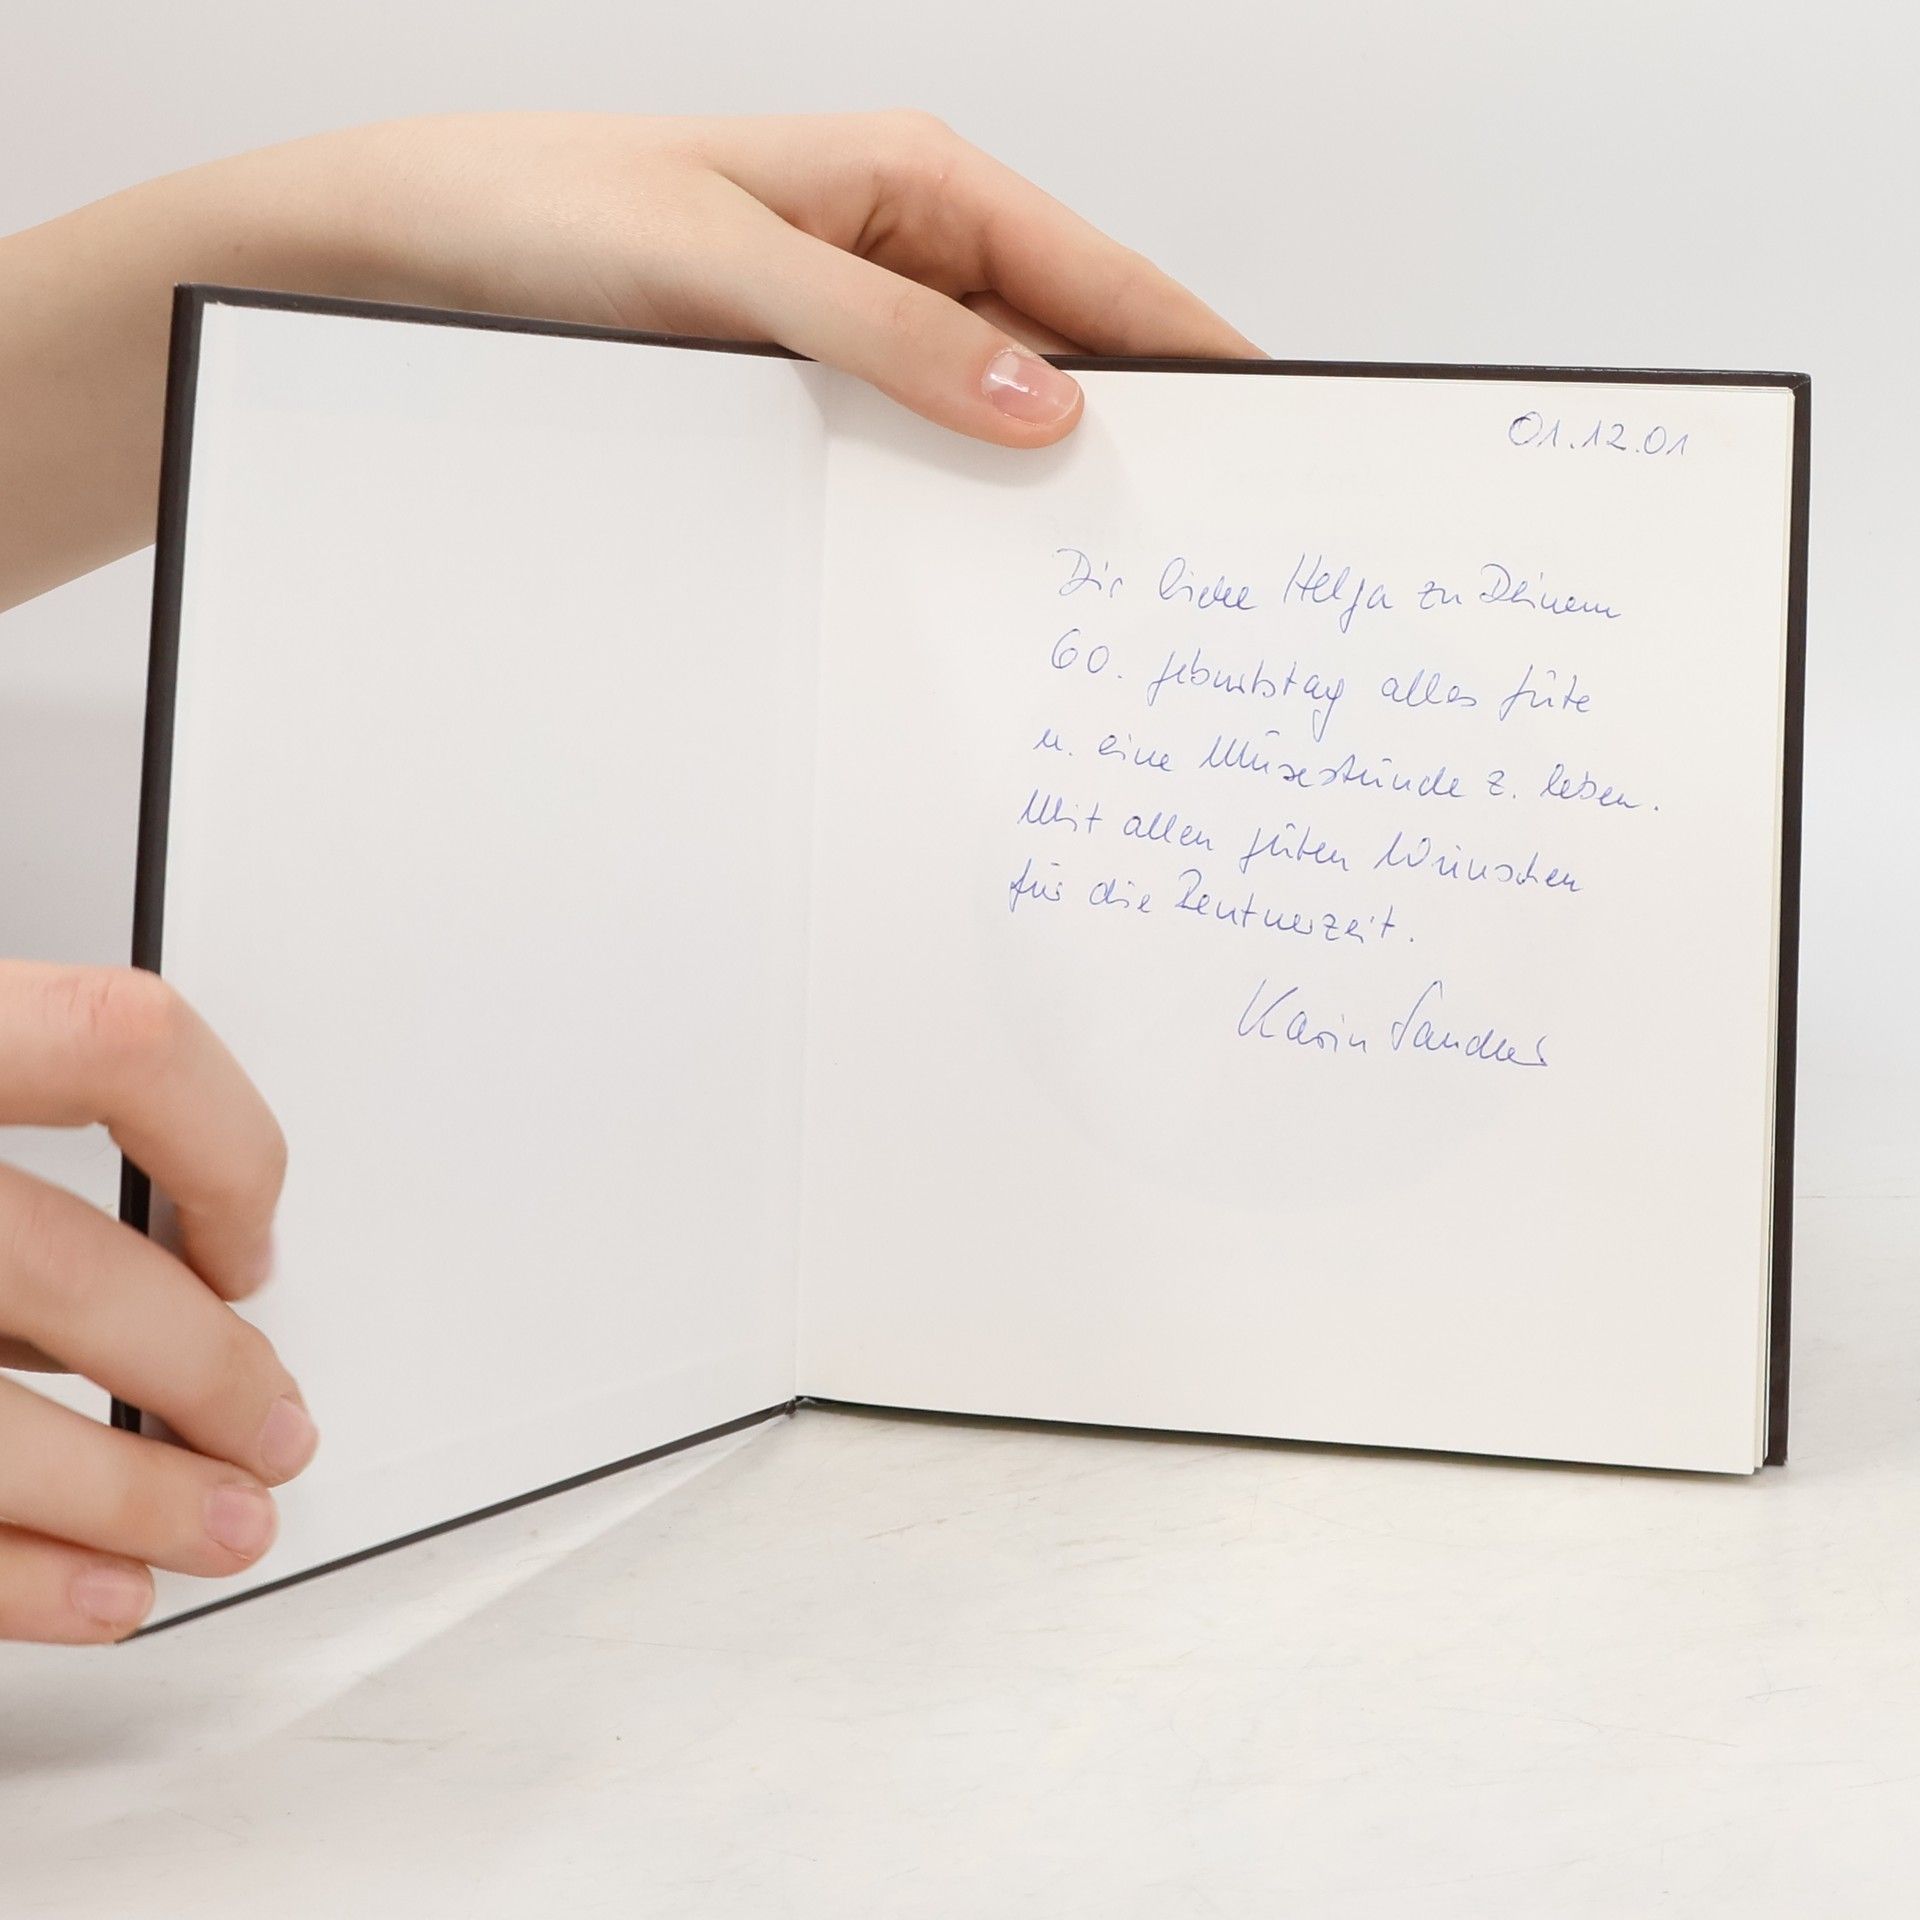 01.12.01
Dir liebe Helga zu Deinem
60. Geburtstag alles Gute
u. eine Musestunde z. lesen.
Mit allen guten Wünschen
für die Rentnerzeit.
Karin Sandler